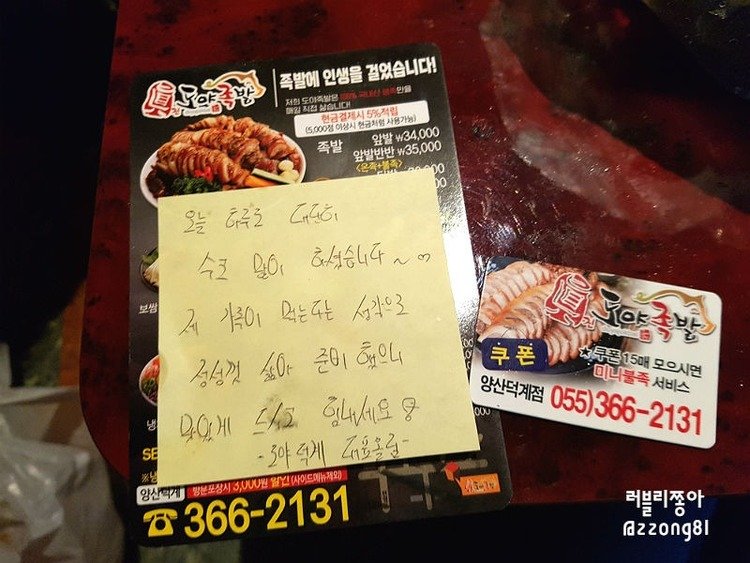 眞진 도야족발
족발에 인생을 걸었습니다!
저희 도야족발은 100% 국내산 생족만을
매일 직접 삶습니다!
현금결제시 5%적립
(5,000점 이상시 현금처럼 사용가능)
족발 앞발 ₩34,000
앞발반반 ₩35,000
<온족+불족>
오늘 하루도 대단히
수고 많이 하셨습니다~
제 가족이 먹는다는 생각으로
정성껏 삶아 준비 했으니
맛있게 드시고 힘내세요
-도야 덕계 대표올림-
보쌈
냉
SE
양산덕계
방문포장시 3,000원 할인 (사이드메뉴제외)
☎366-2131
眞진 도야족발
쿠폰
★쿠폰 15매 모으시면
미니불족 서비스
양산덕계점 055)366-2131
러블리쫑아
@zzong81